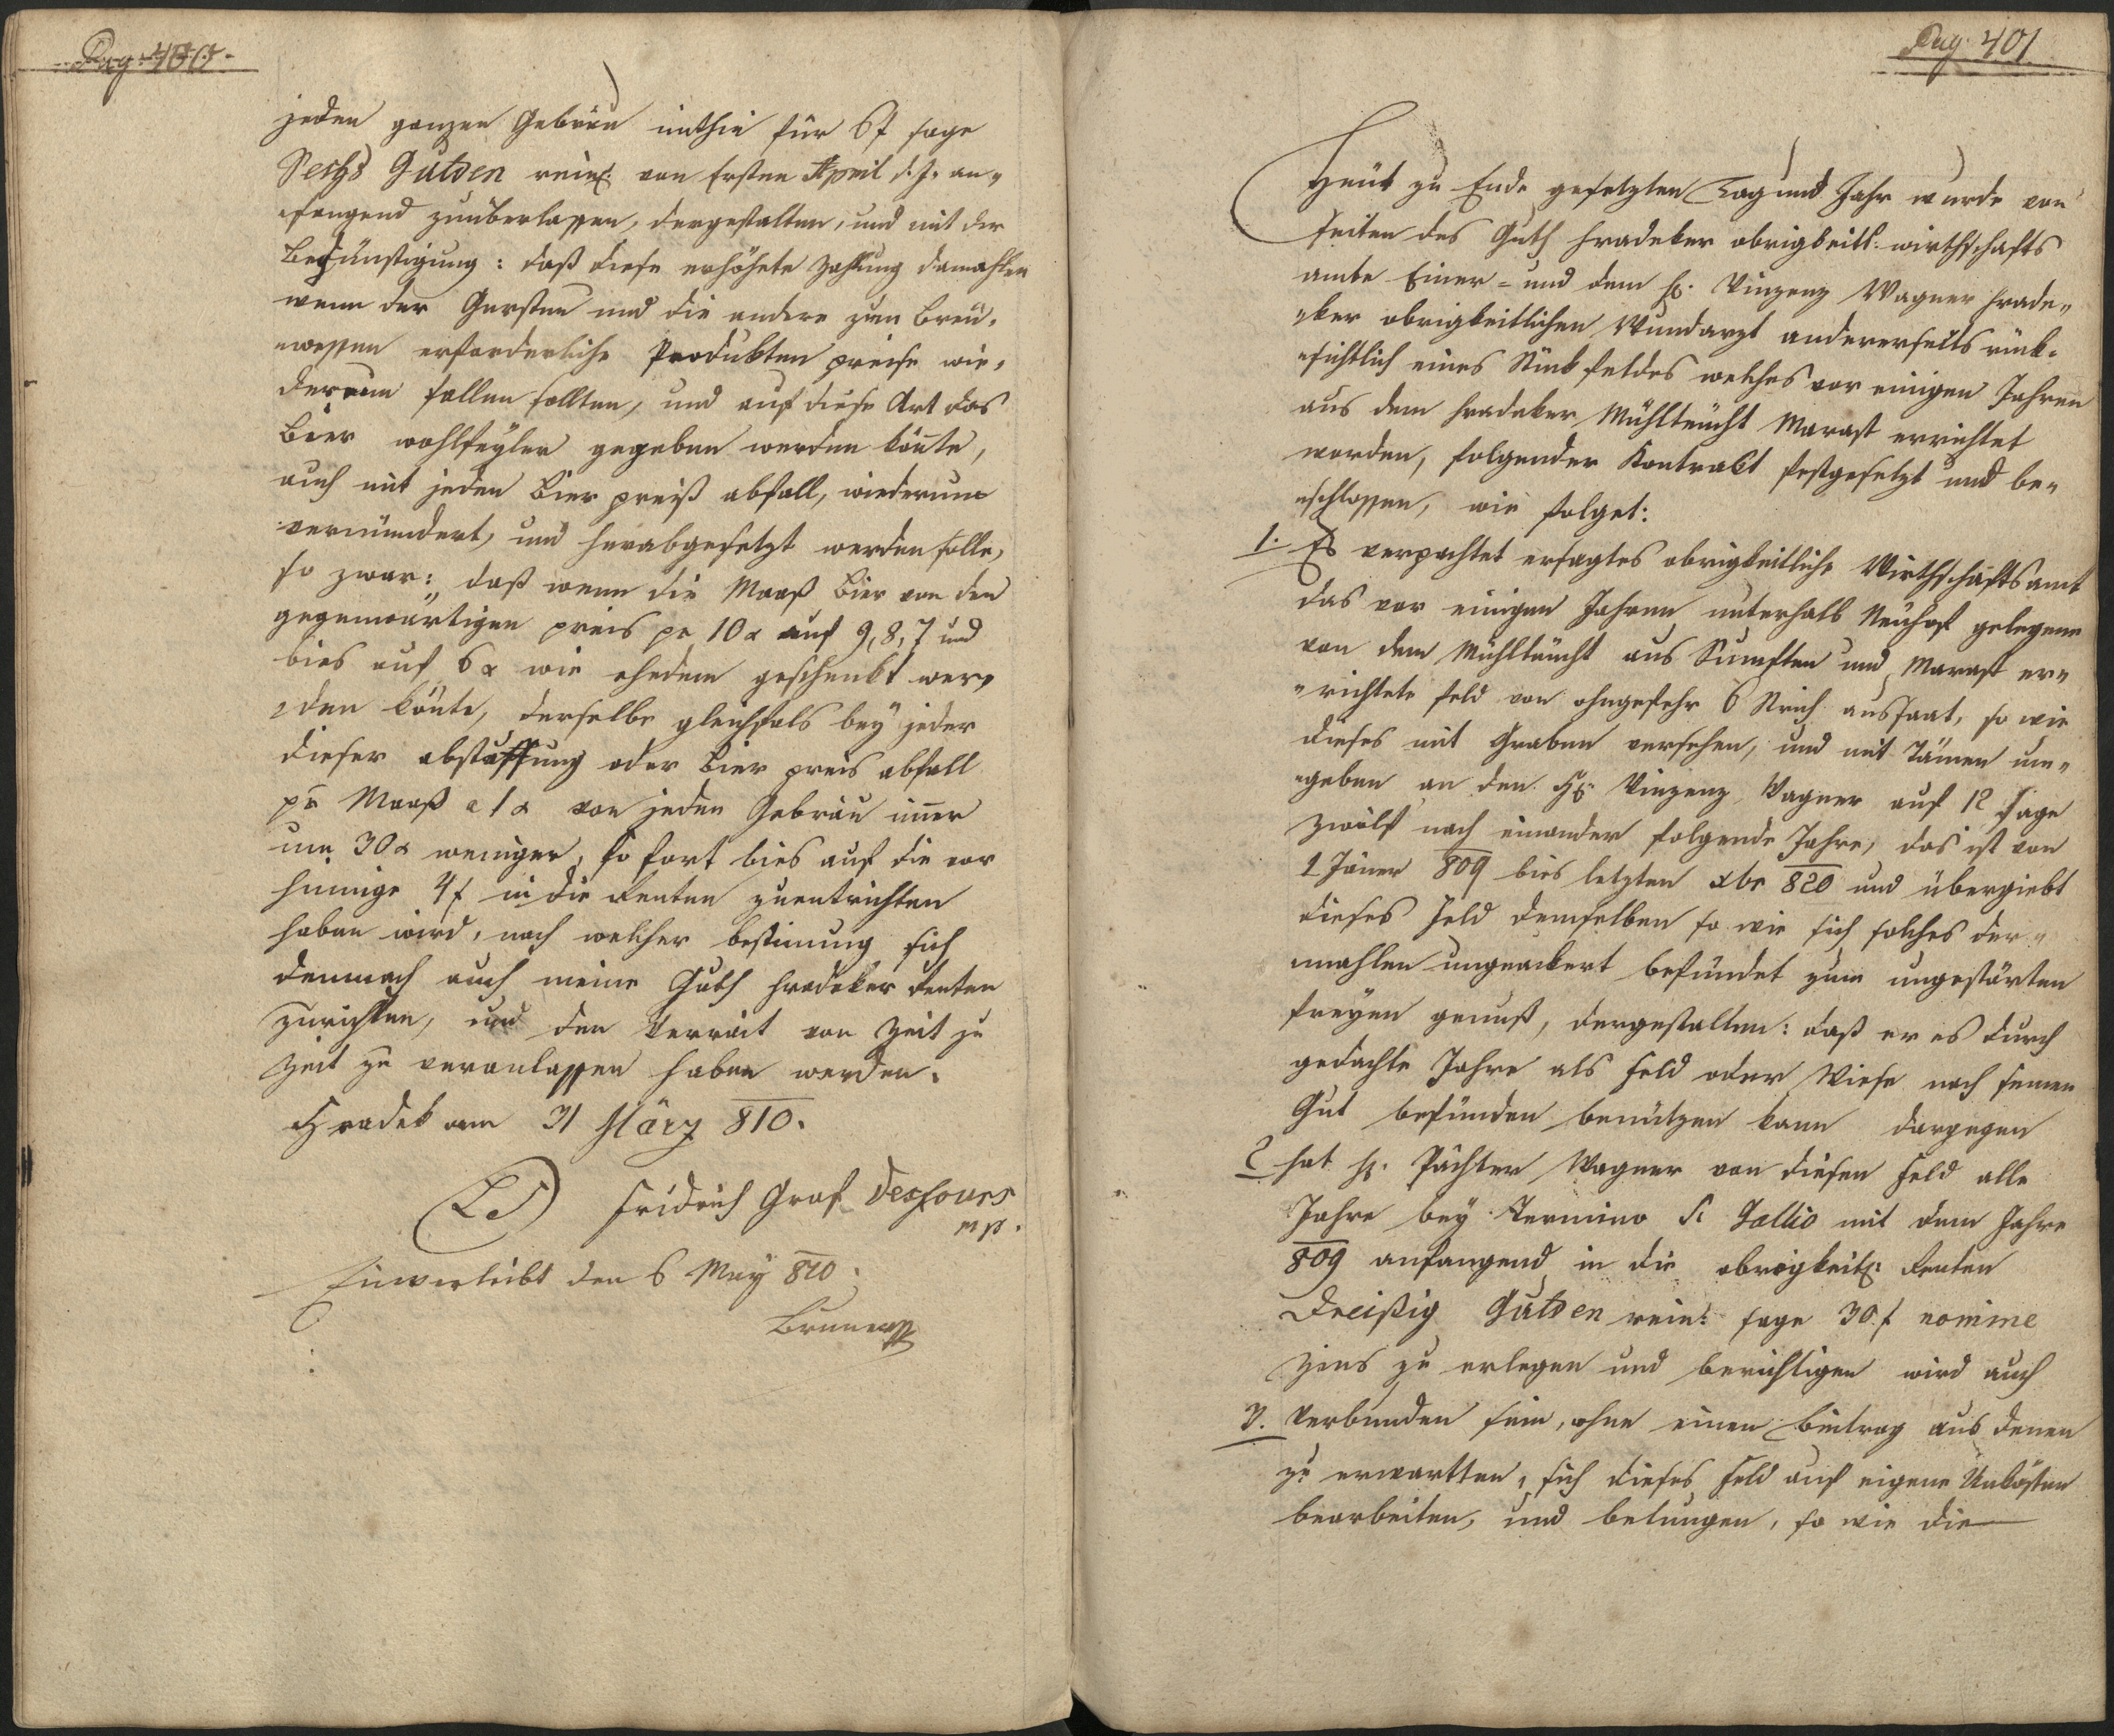 Pag. 400.
jeden ganzen Gebräu mithin für 6 f sage
Sechs Gulden rein: von Ersten April d. J. an-
fangend zuüberlassen, dergestalten, und mit der
Begünstigung: daß diese erhöhete Zahlung damahlen
wenn der Gersten und die andere zum Breu-
wessen erforderliche Produkten preise wie-
derum fallen sollten, und auf diese Art das
Bier wohlfeyler gegeben werden könte,
auch mit jeden Bier preiß abfall, wiederum
vermündert, und herabgesetzt werden solle,
so zwar: daß wenn die Maaß Bier von den
gegenwärtigen preis pr 10 x auf 9, 8, 7 und
bies auf 6 x wie ehedem geschenkt wer-
den könte, derselbe gleichfals bey jeder
dieser abstuffung oder Bier preis abfall
pr Maaß a 1 x von jeden Gebräu imer
um 30 x weniger, so fort bies auf die vor
hinnige 4 f in die Renten zuentrichten
haben wird, nach welcher bestimung sich
demnach auch meine Guth Hradeker Renten
zurichten, und den Verrait von Zeit zu
Zeit zu veranlassen haben werden.
Hradek am 31 März 810.
(LS) Fridrich Graf Desfours
mp.
Einverleibt den 6 May 810.
Brunner
Pag. 401
Heut zu Ende gesetzten Tag und Jahr wurde von
seiten des Guth Hradeker obrigkeitl: wirthschafts
amte Einer- und dem H: Vinzenz Wagner Hrade-
ker obrigkeitlichen Wundarzt andererseits rück-
sichtlich eines Stück feldes welches vor einigen Jahren
aus dem Hradeker Mühlteücht Marast errichtet
worden, folgender Kontrakt festgesetzt und be-
schlossen, wie folget:
1. Es verpachtet ersagtes obrigkeitliche Wirthschaftsamt
das vor einigen Jahren unterhalb Neuhof gelegene
von dem Mühlteücht aus Sümpften und Marast er-
richtete feld von ohngefehr 6 Strich aussaat, so wie
dieses mit Graben versehen, und mit Dämen um-
geben an den H: Vinzenz Wagner auf 12 Sage
Zwölf nach einander folgende Jahre, das ist von
1 Jäner 809 bies letzten xbr 820 und übergiebt
dieses Feld demselben so wie sich solches der-
mahlen ungeackert befündet zum ungestörten
freyen genuß, dergestalten: daß er es durch
gedachte Jahre als Feld oder Wiese nach seinen
Gut befünden benützen kann dargegen
2 hat H: Pächter Wagner von diesen Feld alle
Jahre bey Termino St Gallio mit dem Jahre
809 anfangend in die obrigkeitl: Renten
Dreißig Gulden rein: sage 30 f nomine
Zins zu erlegen und berichtigen wird auch
3. Verbunden sein, ohne einen beitrag aus denen
zu erwartten, sich dieses Feld auf eigene Unkösten
bearbeiten, und betungen, so wie die